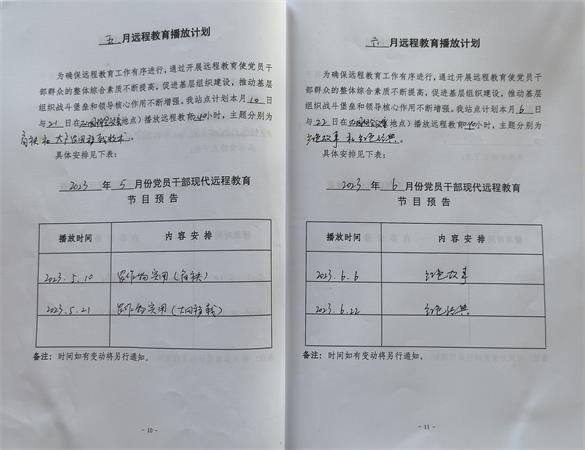 五 月远程教育播放计划
为确保远程教育工作有序进行，通过开展远程教育使党员干
部群众的整体综合素质不断提高，促进基层组织建设，推动基层
组织战斗堡垒和领导核心作用不断增强。我站点计划本月 10 日
与 21 日在（地点）播放远程教育 小时，主题分别为
育秧 和
具体安排见下表：
2023 年 5 月份党员干部现代远程教育
节目预告
播放时间 内容安排
2023.5.10 农作物实用（育秧）
2023.5.21 农作物实用（大田移栽）
备注： 时间如有变动将另行通知。
- 10 -
六 月远程教育播放计划
为确保远程教育工作有序进行，通过开展远程教育使党员干
部群众的整体综合素质不断提高，促进基层组织建设，推动基层
组织战斗堡垒和领导核心作用不断增强。我站点计划本月 6 日
与 22 日在（地点）播放远程教育 小时，主题分别为
红色故事 和 红色经典。
具体安排见下表：
2023 年 6 月份党员干部现代远程教育
节目预告
播放时间 内容安排
2023.6.6 红色故事
2023.6.22 红色经典
备注： 时间如有变动将另行通知。
- 11 -